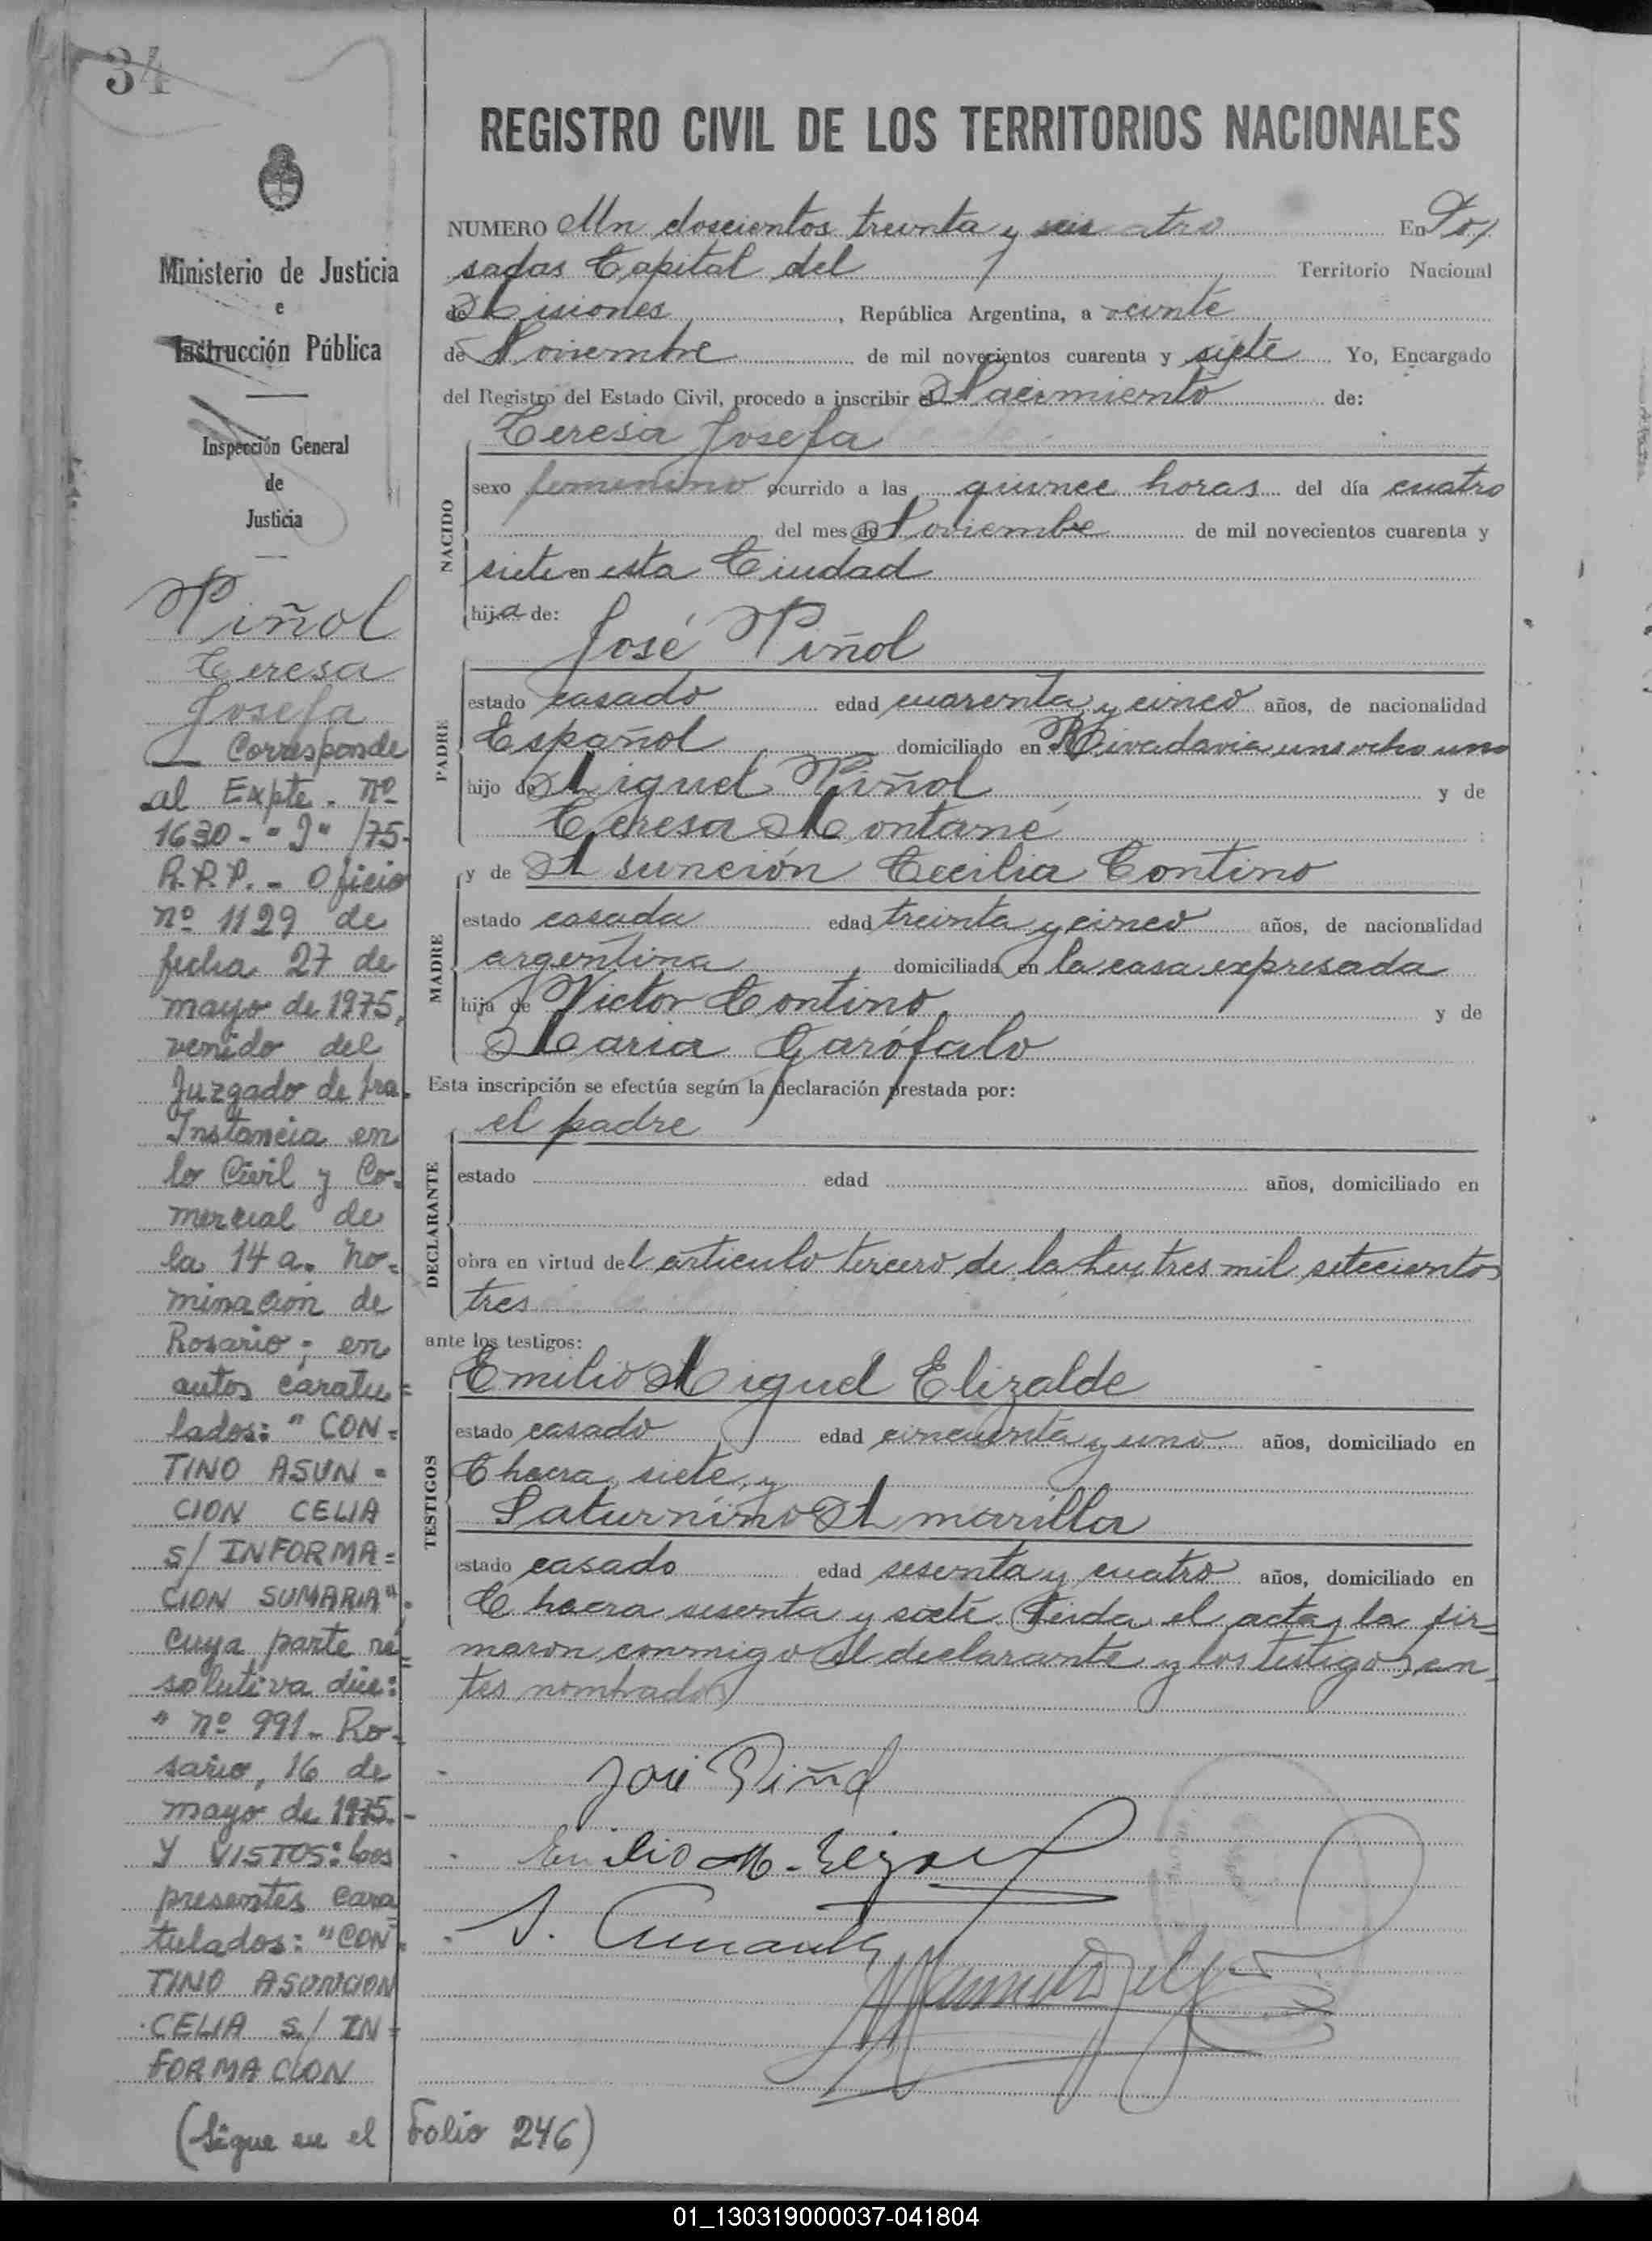 34
Ministerio de Justicia
e
Instrucción Pública
Inspección General
de
Justicia
Piñol
Teresa
Josefa
Corresponde
al Expte. Nº
1630 - "J" /75-
R.P.P. - Oficio
nº 1129 de
fecha 27 de
mayo de 1975,
venido del
Juzgado de 1ra.
Instancia en
lo Civil y Co-
mercial de
la 14 a. No-
minación de
Rosario; en
autos caratu=
lados: "CON=
TINO ASUN=
CION CELIA
S/ INFORMA=
CION SUMARIA".
cuya parte re=
solutiva dice:
"nº 991 - Ro-
sario, 16 de
mayo de 1975.-
Y VISTOS: Los
presentes cara
tulados: "CON=
TINO ASUNCION
CELIA S/ IN=
FORMACION
(Sigue en el Folio 246)
REGISTRO CIVIL DE LOS TERRITORIOS NACIONALES
NUMERO Mn doscientos treinta y En Po/
sadas Capital del Territorio Nacional
de Misiones, República Argentina, a veinte
de Noviembre de mil novecientos cuarenta y siete Yo, Encargado
del Registro del Estado Civil, procedo a inscribir el Nacimiento de:
Teresa Josefa
NACIDO
sexo femenino ocurrido a las quince horas del día cuatro
del mes de Noviembre de mil novecientos cuarenta y
siete en esta Ciudad
hija de:
José Piñol
PADRE
estado casado edad cuarenta y cinco años, de nacionalidad
Español domiciliado en Rivadavia uno ocho uno
hijo de Miguel Piñol y de
Teresa Montané
y de Asunción Cecilia Contino
MADRE
estado casada edad treinta y cinco años, de nacionalidad
argentina domiciliada en la casa expresada
hija de Victor Contino y de
Maria Garófalo
Esta inscripción se efectúa según la declaración prestada por:
el padre
DECLARANTE
estado edad años, domiciliado en
obra en virtud del artículo tercero de la Ley tres mil setecientos
tres
ante los testigos:
Emilio Miguel Elizalde
TESTIGOS
estado casado edad cincuenta y uno años, domiciliado en
Chacra siete, y
Saturnino Amarilla
estado casado edad sesenta y cuatro años, domiciliado en
Chacra sesenta y siete Leida el acta, la fir=
maron conmigo el declarante y los testigos an=
tes nombrados
José Piñol
Emilio M.
S.
01_130319000037-041804